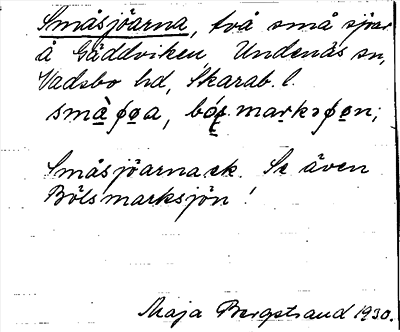 Småsjöarna, två små sjöar
å Gäddviken, Undenäs sn,
Vadsbo hd, Skarab. l.
småɸøa, marksɸøn;
Småsjöarna ek. Se även
Bölsmarksjön!
Maja Bergstrand 1930.